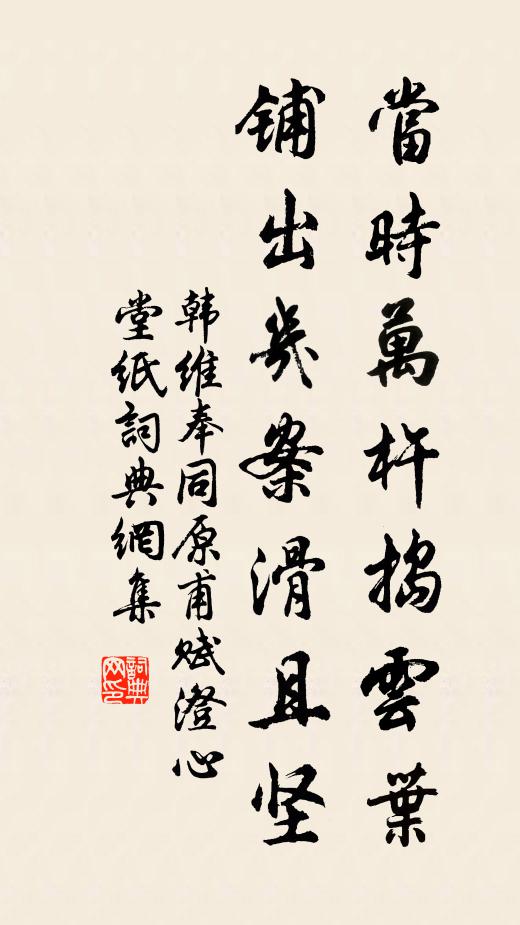 當時萬杵搗雲葉
铺出几案滑且坚
韩維奉同原甫赋澄心
堂纸詞典網集
詞典网印